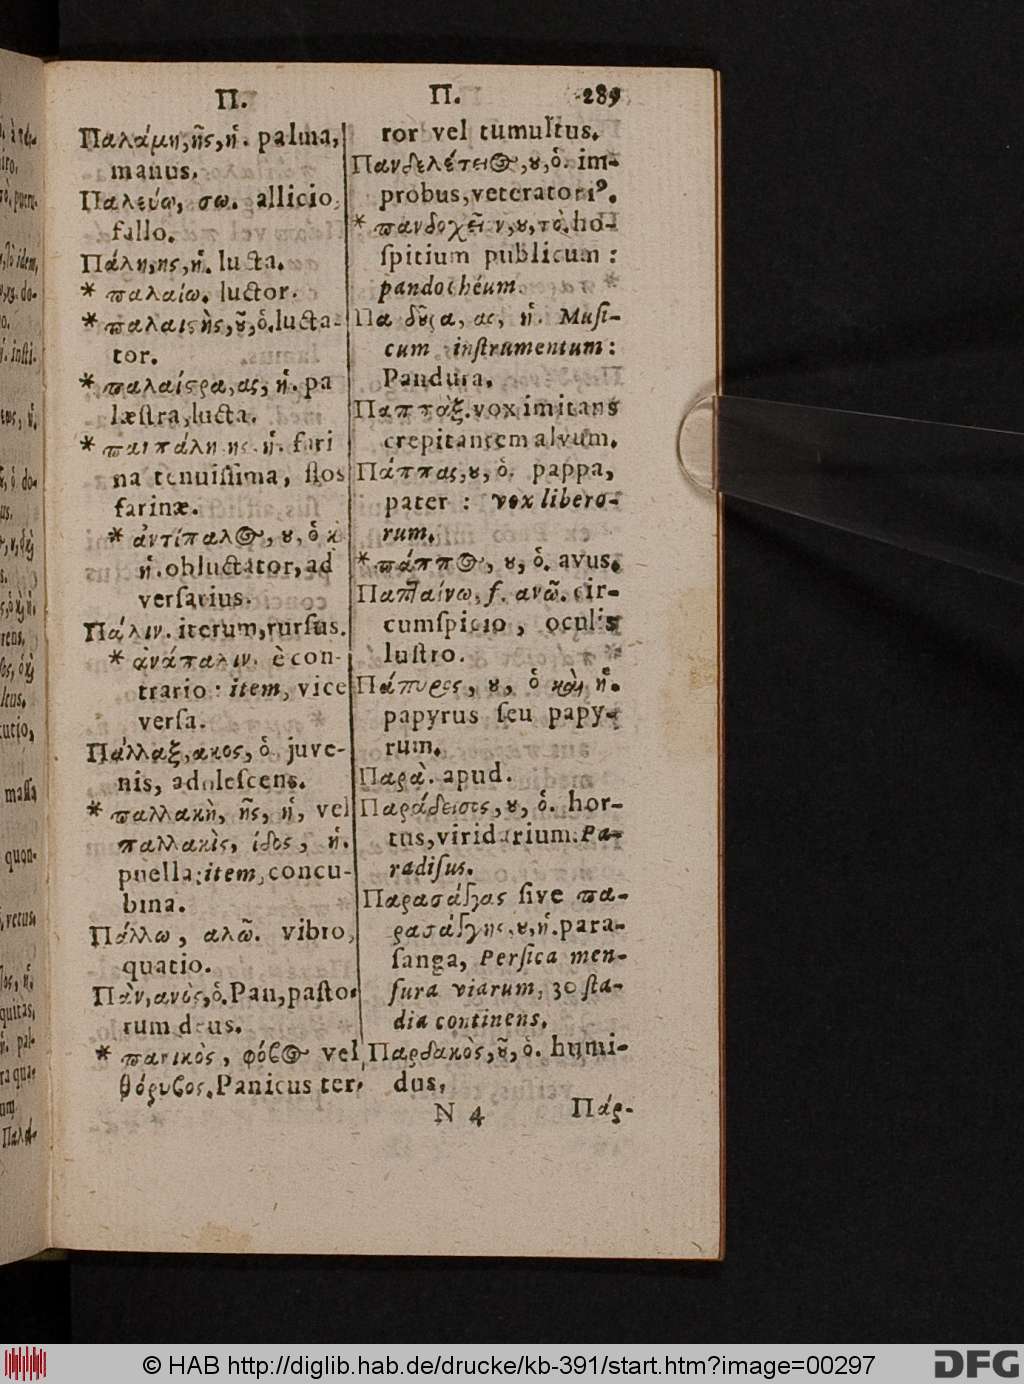 Π.
Π.
289
Παλάμη, ης, ἡ. palma,
manus.
Παλεύω, σω. allicio,
fallo.
Πάλη, ης, ἡ. lucta.
* παλαίω. luctor.
* παλαιςὴς, ȣ͂, ὁ. lucta-
tor.
* παλαίςρα, ας, ἡ. pa
læſtra, lucta.
* παιπάλη ης. ἡ. fari
na tenuiſſima, flos
farinæ.
* ἀντίπαλος, ȣ, ὁ κ̀
ἡ. obluctator, ad
verſarius.
Πάλιν. iterum, rurſus.
* ἀνάπαλιν. è con-
trario: item, vice
verſa.
Πάλλαξ, ακος, ὁ. juve-
nis, adoleſcens.
* παλλακὴ, ῆς, ἡ, vel
παλλακὶς, ίδος, ἡ.
puella: item, concu-
bina.
Πάλλω, αλῶ. vibro,
quatio.
Πὰν, ανὸς, ὁ. Pan, paſto-
rum deus.
* πανικὸς, φόβος vel
θόρυβος. Panicus ter-
ror vel tumultus.
Πανδελέτειος, ȣ, ὁ. im-
probus, veterator.
* πανδοχεῖον, ȣ, τὸ. ho-
ſpitium publicum:
pandochéum.
Πανδοῦρα, ας, ἡ. Muſi-
cum inſtrumentum:
Pandura.
Παππάξ. vox imitans
crepitantem alvum.
Πάππας, ȣ, ὁ. pappa,
pater: vox libero-
rum.
* πάππος, ȣ, ὁ. avus.
Παπταίνω, f. ανῶ. cir-
cumſpicio, oculis
luſtro.
Πάπυρος, ȣ, ὁ καὶ ἡ.
papyrus ſeu papy-
rum.
Παρὰ. apud.
Παράδεισος, ȣ, ὁ. hor-
tus, viridarium. Pa-
radiſus.
Παρασάγγας ſive πα-
ρασάγγης, ȣ, ἡ. para-
ſanga, Perſica men-
ſura viarum, 30 ſta-
dia continens.
Παρδακὸς, ȣ͂, ὁ. humi-
dus.
N 4
Πάρ-
© HAB http://diglib.hab.de/drucke/kb-391/start.htm?image=00297
DFG